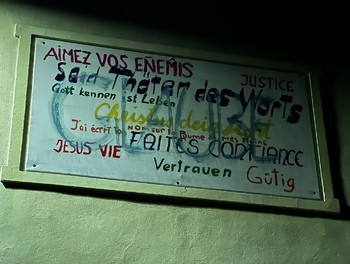 AIMEZ VOS ENEMIS
JUSTICE
Seid Thäter des Worts
Gott kennen ist Leben
Christus dein
J'ai écrit ton NOM sur la Paume de mes
FAITES CONFIANCE
JESUS VIE
Vertrauen
Gütig